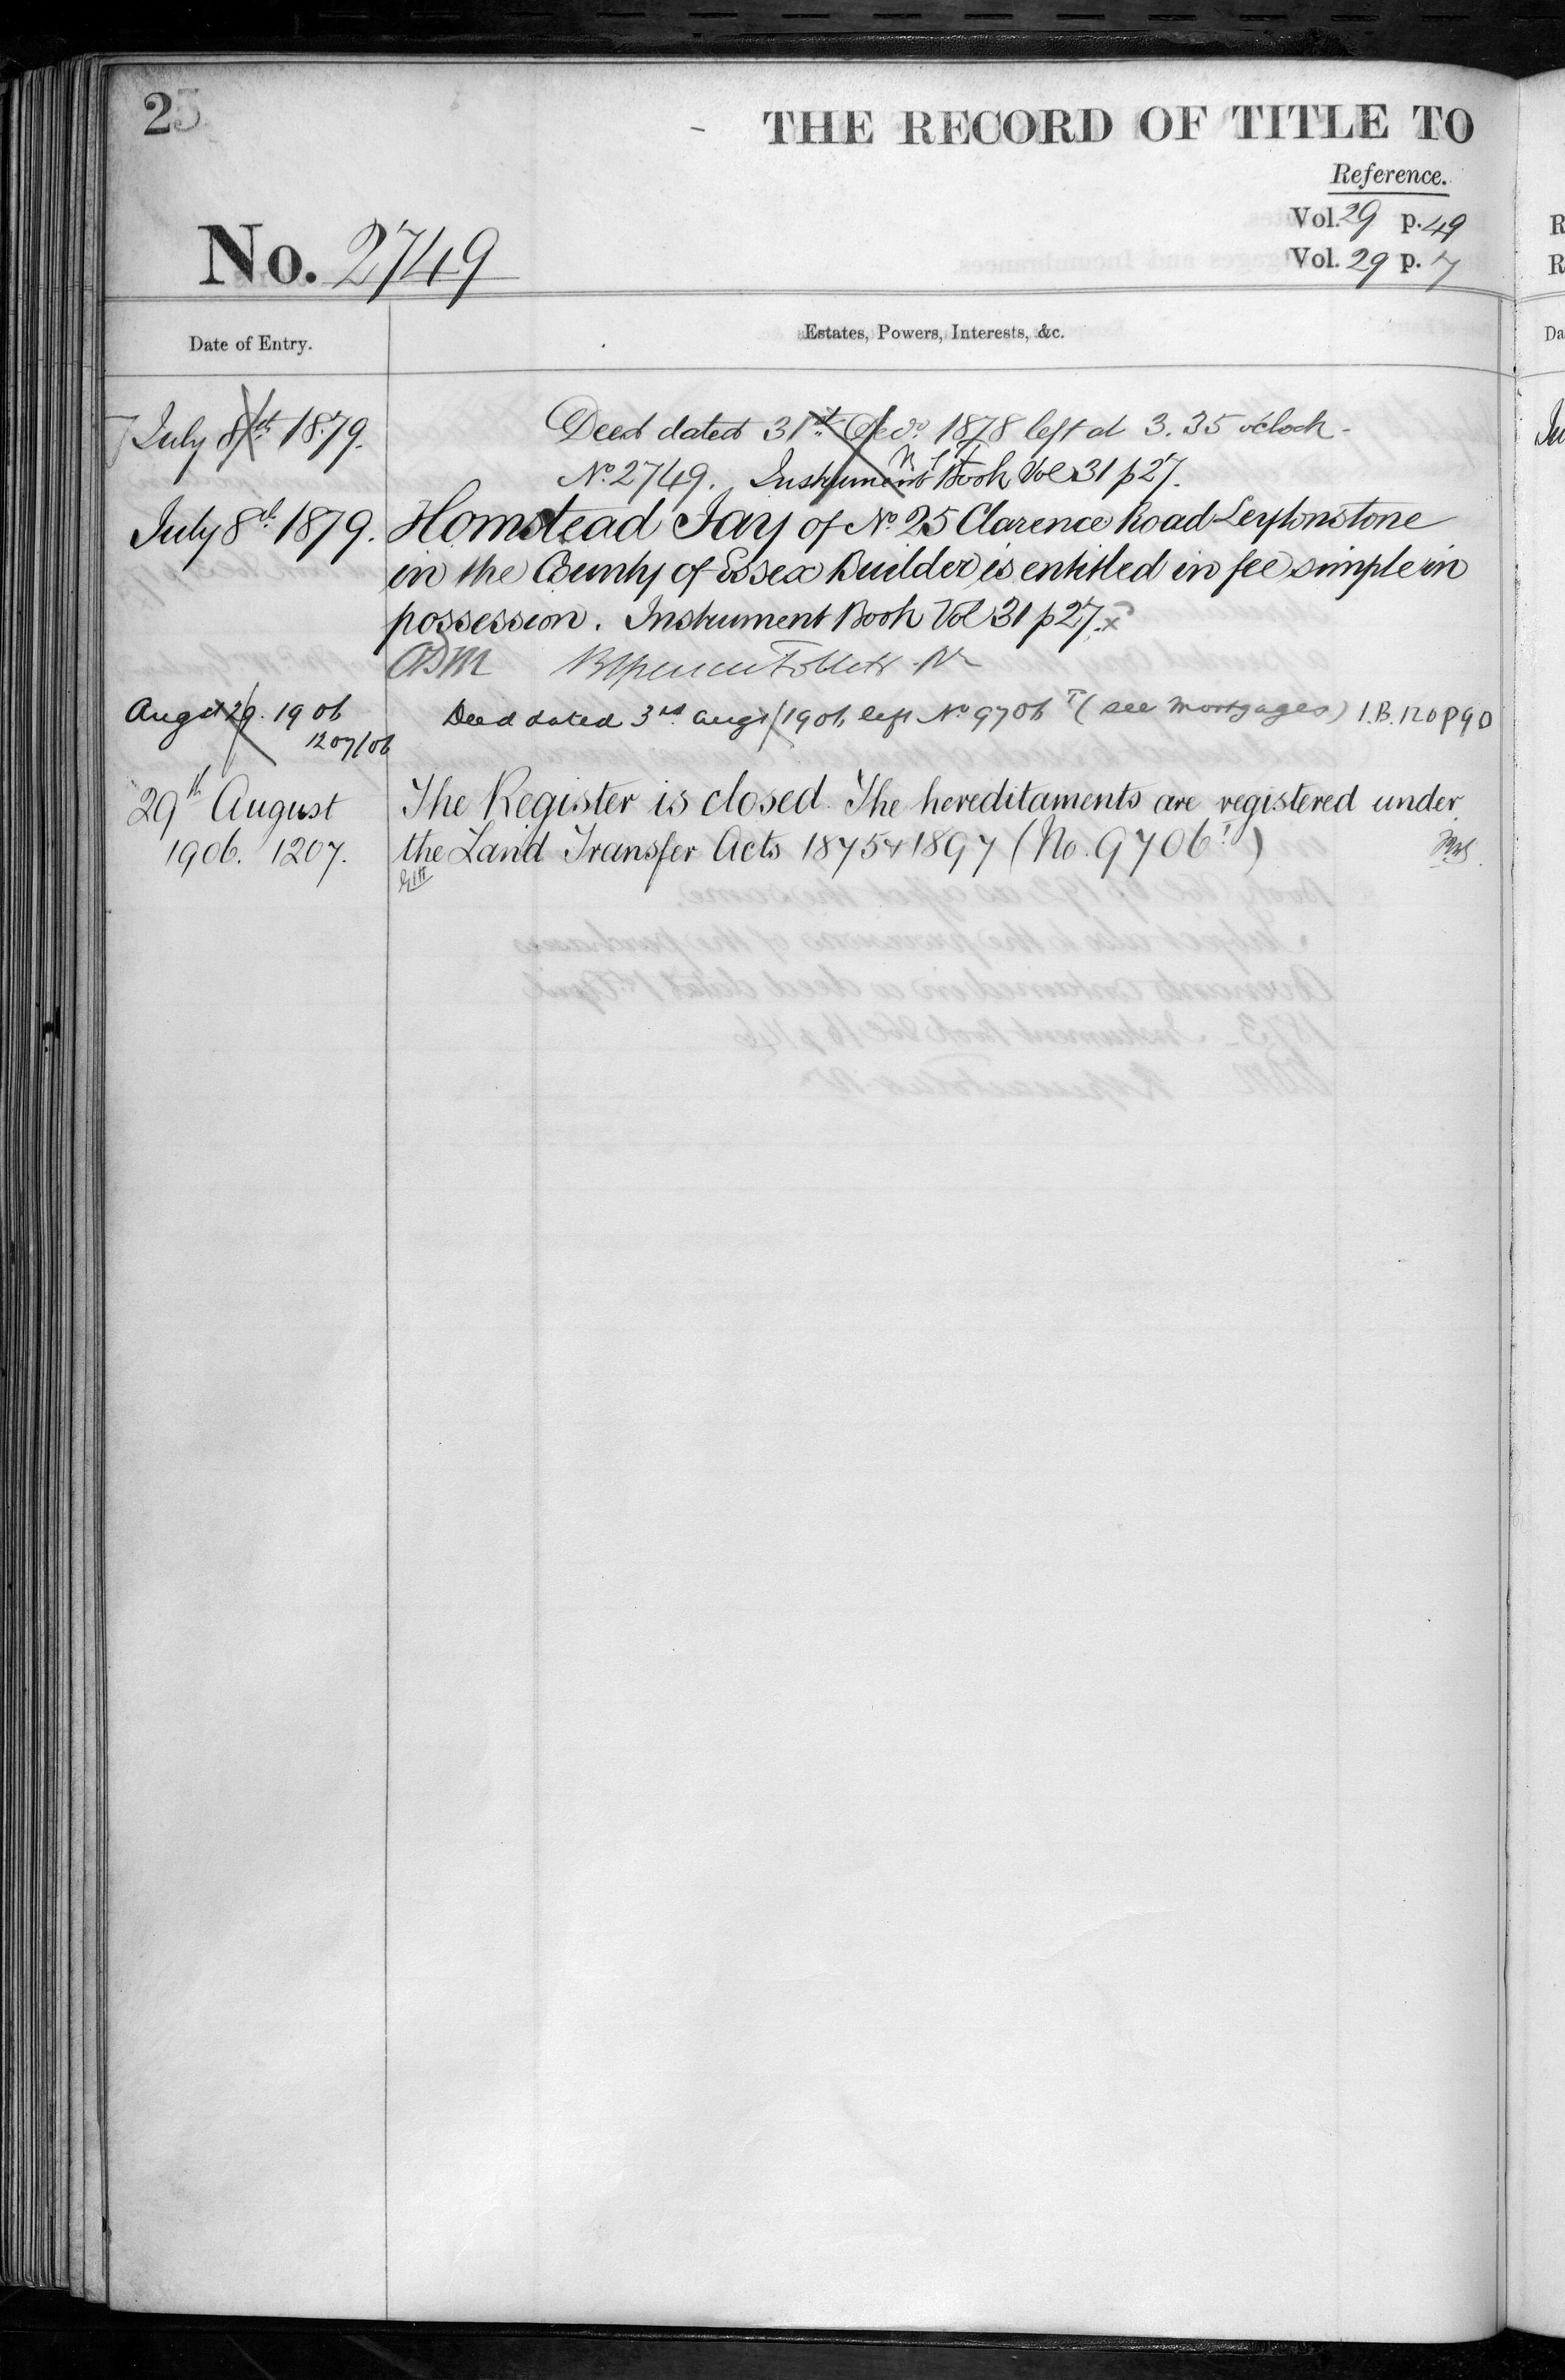 25
THE RECORD OF TITLE TO
Reference.
Vol. 29 p. 49
Vol. 29 p. 7
No. 2749
Date of Entry.
Estates, Powers, Interests, &c.
July 8th 1879.
Deed dated 31st Decr. 1878 left at 3.35 o'clock -
No. 2749. Instrument Book Vol 31 p27.
July 8th 1879.
Homstead Jay of No. 25 Clarence Road Leytonstone
in the County of Essex Builder is entitled in fee simple in
possession. Instrument Book Vol 31 p27. x
ADM
August 29. 1906
1207/06
Deed dated 3rd Augt 1906 left No 9706 T (see Mortgages) I.B. 120 p 90
29th August
1906. 1207.
The Register is closed. The hereditaments are registered under
the Land Transfer Acts 1875 & 1897 (No. 9706 T.)
R
R
Da
Ju